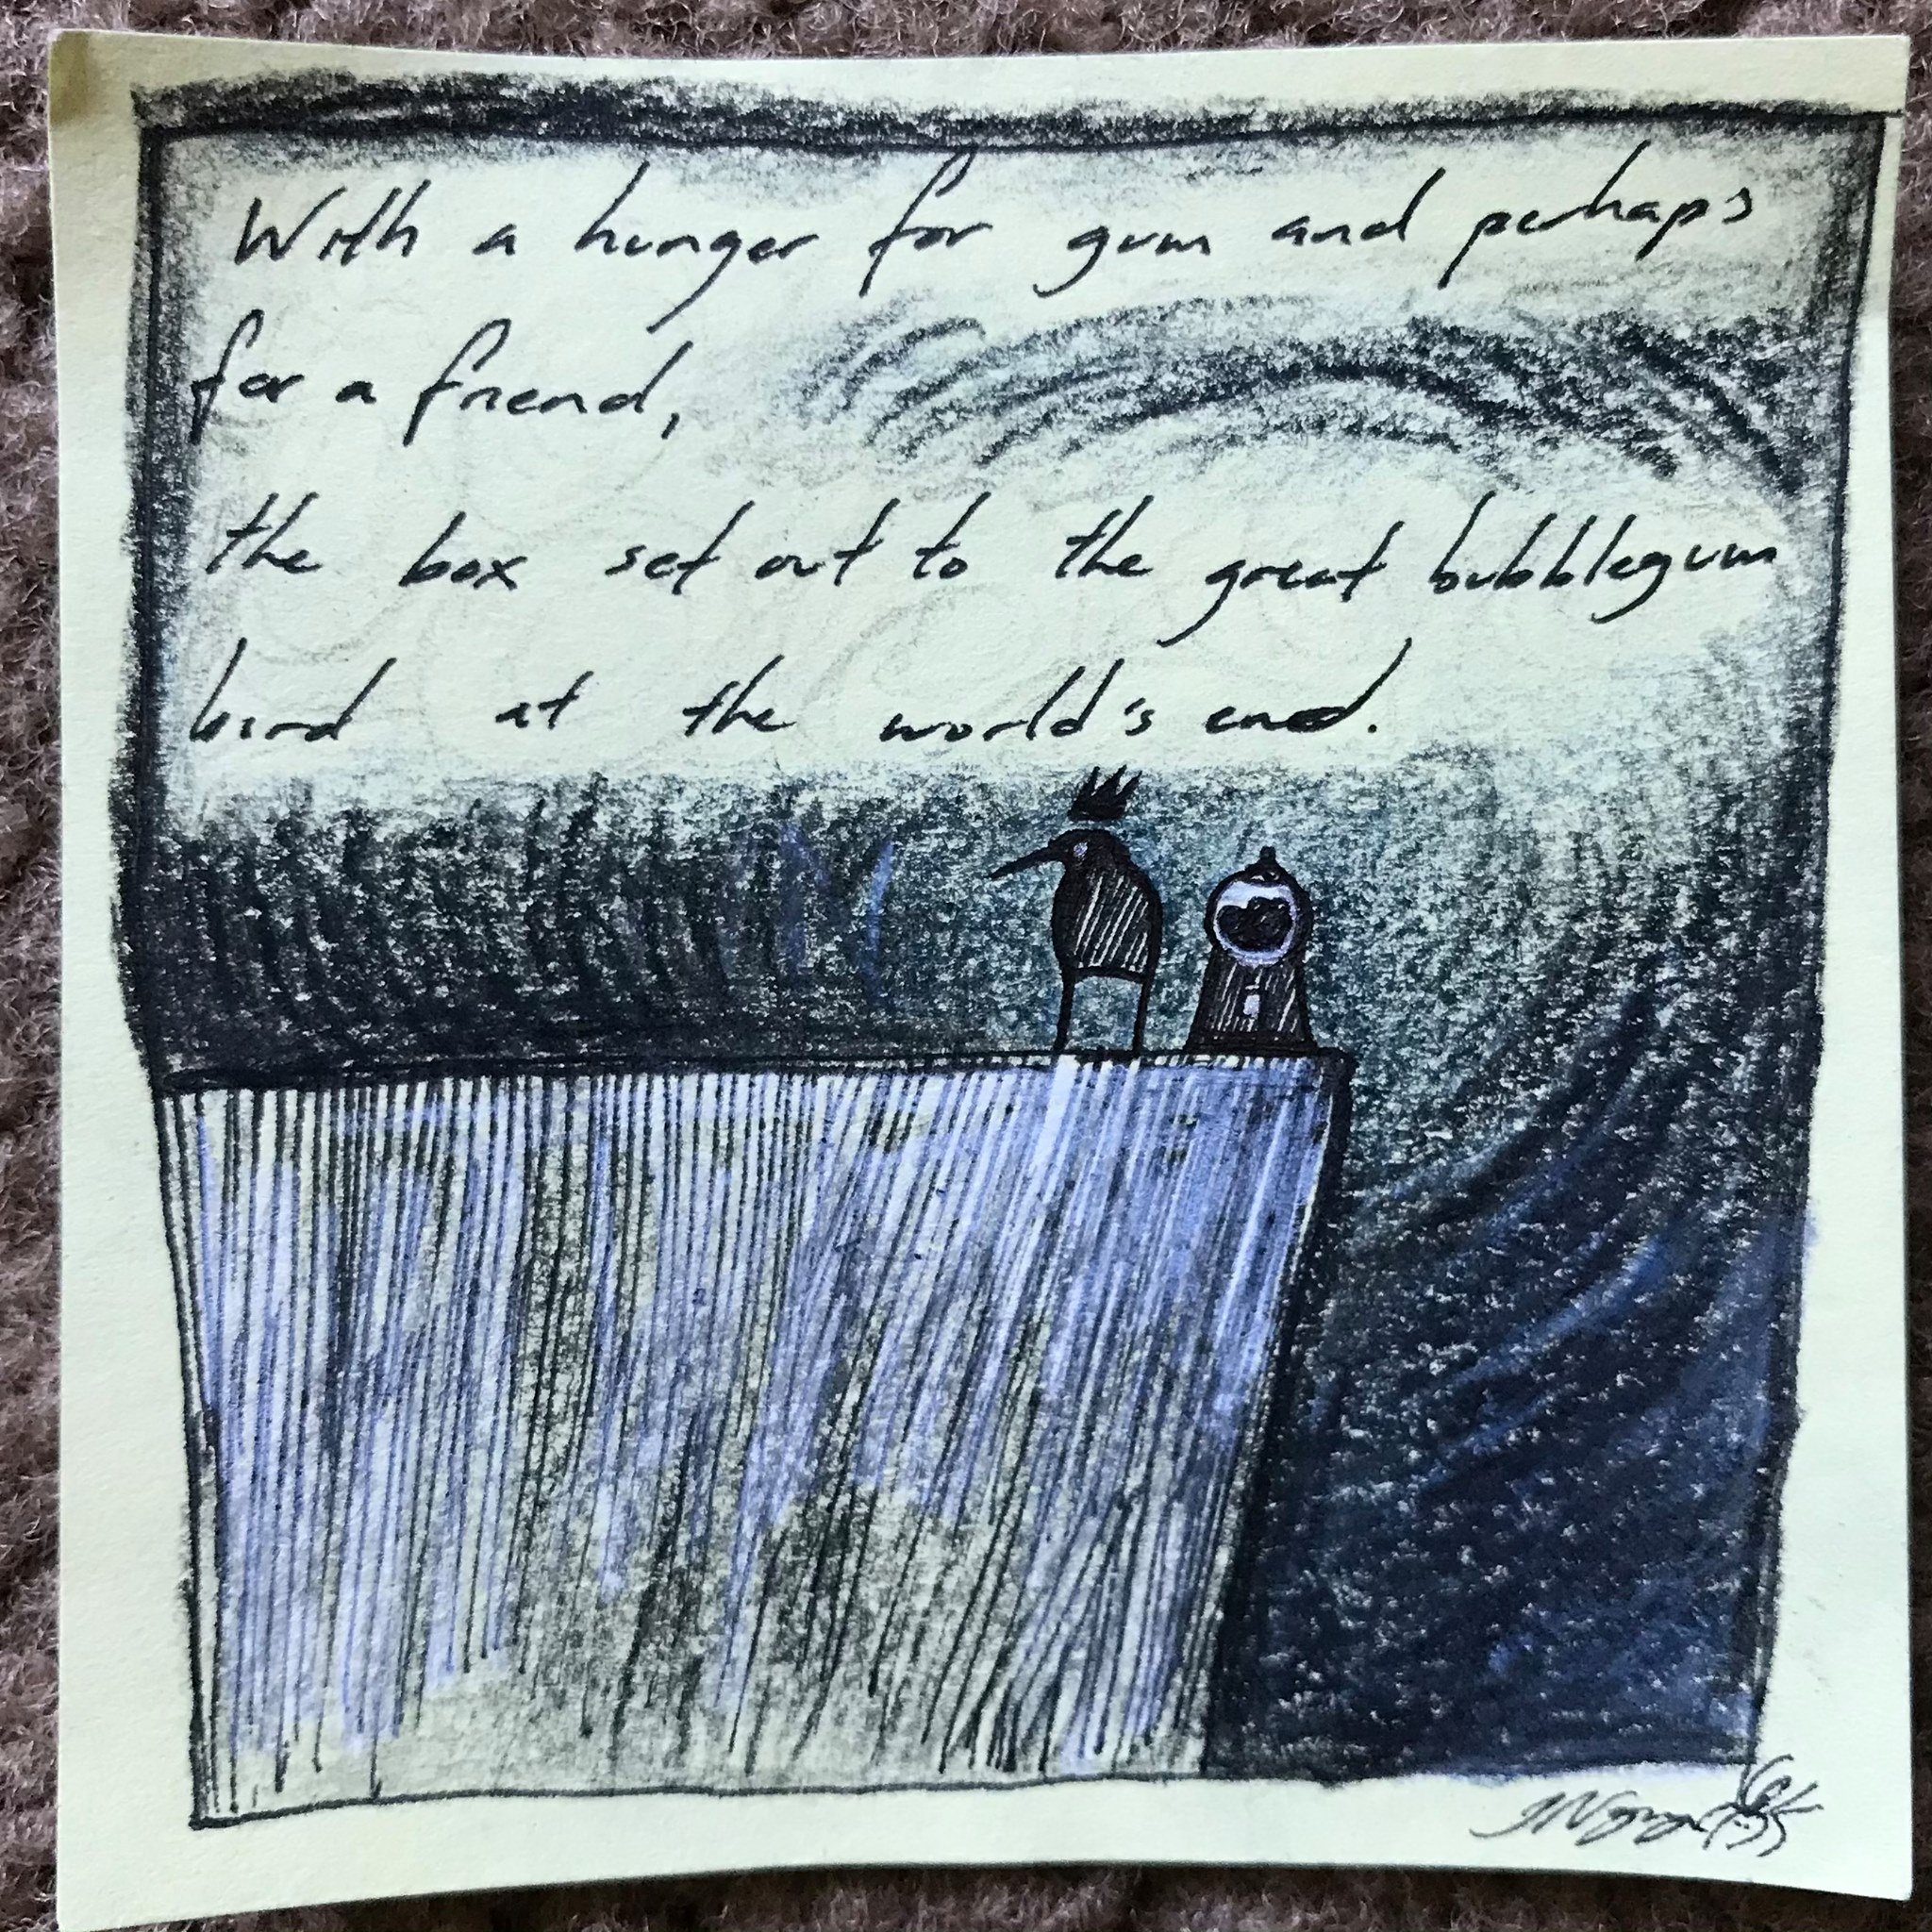 With a hunger for gum and perhaps
for a friend,
the box set out to the great bubblegum
bird at the world's end.